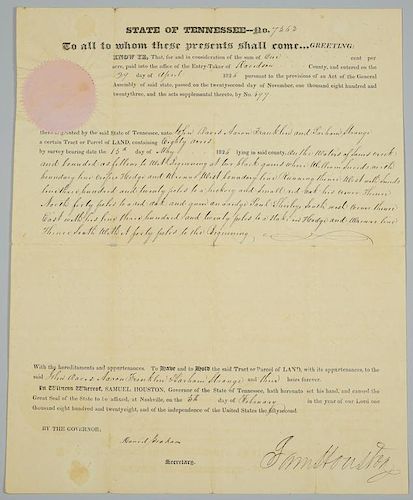 STATE OF TENNESSEE--No. 7262
To all to whom these presents shall come...GREETING:
KNOW YE, That, for and in consideration of the sum of One cent per
acre, paid into the office of the Entry-Taker of Davidson County, and entered on the
29 day of April 1825 pursuant to the provisions of an Act of the General
Assembly of said state, passed on the twenty-second day of November, one thousand eight hundred and
twenty-three, and the acts supplemental thereto, by No. 197
there is granted by the said State of Tennessee, unto John Davis Aaron Franklin and Parham Strange
a certain Tract or Parcel of LAND, containing Eighty acres
by survey bearing date the 15th day of May 1825 lying in said county on the Waters of Sams creek
and bounded as follows to Wit Beginning at two black gums where William
boundary line Hedge and West boundary line Running thence West with
line three hundred and twenty poles to a hickory and Small red oak his corner thence
North forty poles to a red oak and gum on ridge Paul Shirleys South west corner thence
East with his line three hundred and twenty poles to a Stake in Hedge and line
thence South With it forty poles to the Beginning
With the hereditaments and appurtenances. To Have and to Hold the said Tract or Parcel of LAND, with its appurtenances, to the
said John Davis Aaron Franklin Parham Strange and their heirs forever.
In Witness Whereof, SAMUEL HOUSTON, Governor of the State of Tennessee, hath hereunto set his hand, and caused the
Great Seal of the State to be affixed, at Nashville, on the 5th day of February in the year of our Lord one
thousand eight hundred and twenty-eight, and of the independence of the United States the fifty-second
BY THE GOVERNOR,
Daniel Graham
Secretary.
Sam Houston